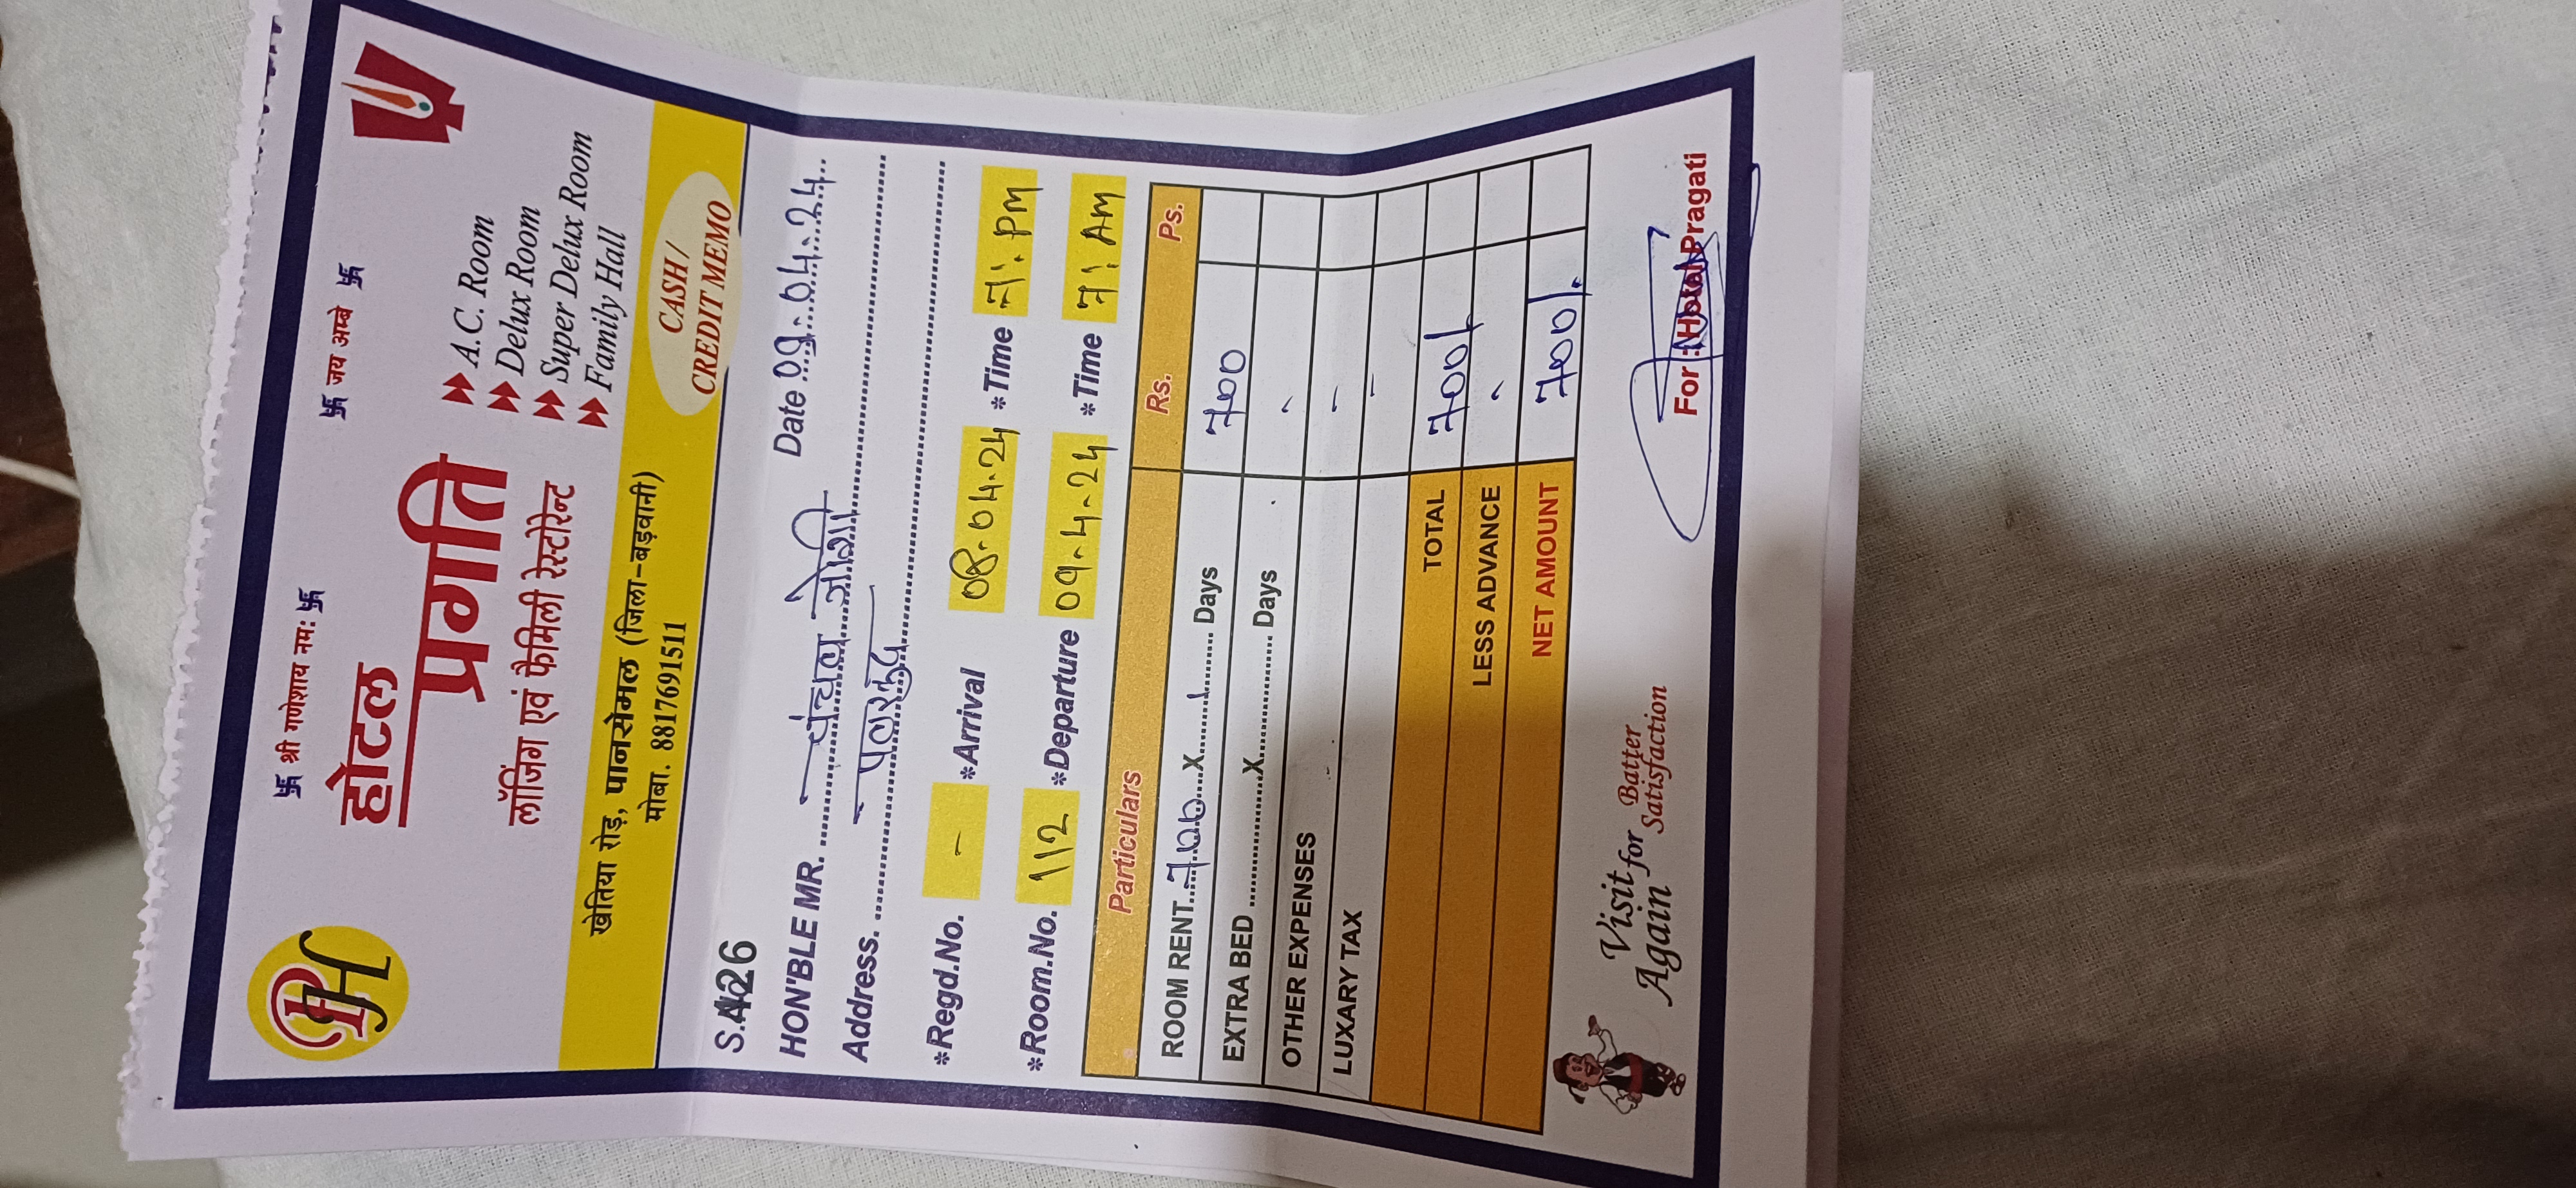 卐 श्री गणेशाय नम: 卐 卐 जय अम्बे 卐
PH
होटल
प्रगति
लॉजिंग एवं फैमिली रेस्टोरेन्ट
A.C. Room
Delux Room
Super Delux Room
Family Hall
खेतिया रोड़, पानसेमल (जिला-बड़वानी)
मोबा. 8817691511
CASH /
CREDIT MEMO
426
HON'BLE MR. चंचल जोशी Date 09.04.24
Address. पलसूद
*Regd.No. - *Arrival 08.04.24 *Time 7:PM
*Room.No. 112 *Departure 09.4.24 *Time 7:AM
Particulars Rs. Ps.
ROOM RENT 700 X 1 Days 700
EXTRA BED X Days -
OTHER EXPENSES -
LUXARY TAX -
TOTAL 700/
LESS ADVANCE -
NET AMOUNT 700/.
Visit for Batter
Again Satisfaction
For : Hotal Pragati